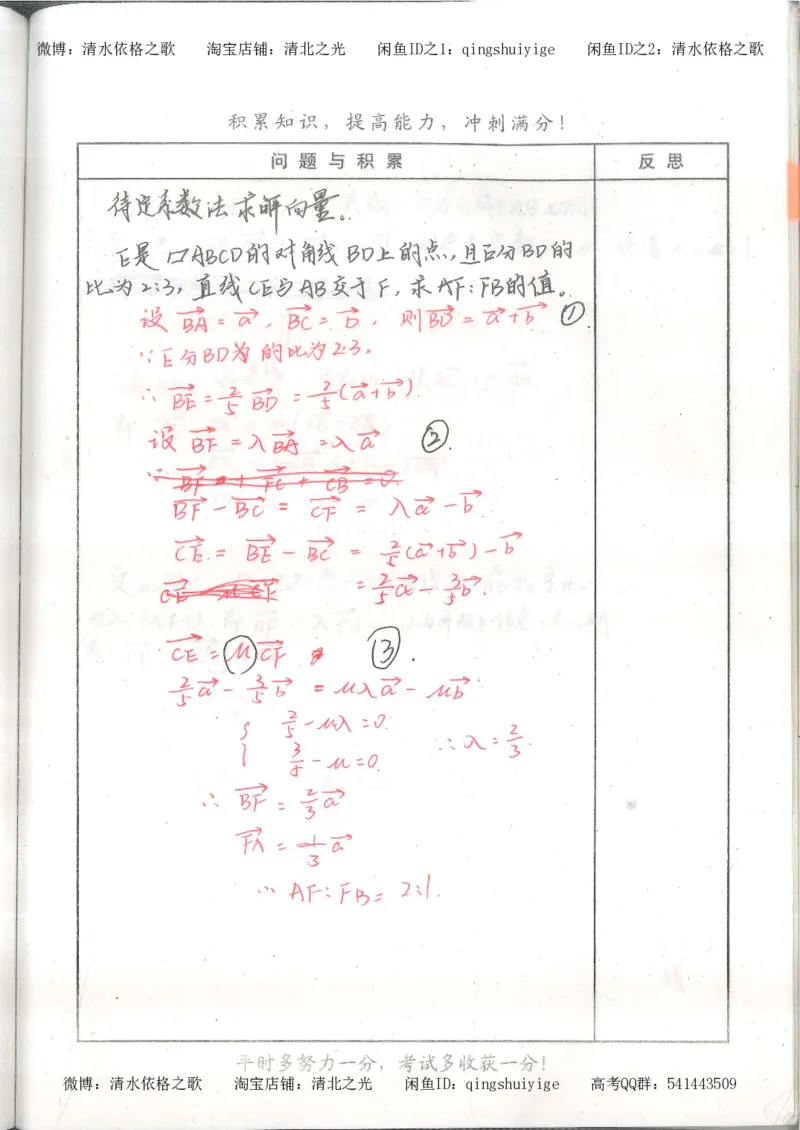 微博：清水依格之歌 淘宝店铺：清北之光 闲鱼ID之1：qingshuiyige 闲鱼ID之2：清水依格之歌
积累知识，提高能力，冲刺满分！
问题与积累 反思
待定系数法求解向量。
E是▱ABCD的对角线BD上的点,且E分BD的
比为2:3,直线CE与AB交于F,求AF:FB的值。
设 BA→ = a→, BC→ = b→, 则BD→ = a→+b→ ①
∵E分BD为的比为2:3.
∴ BE→ = 2/5 BD→ = 2/5(a→+b→).
设 BF→ = λBA→ = λa→ ②.
∵ BF→ + FC→ + CB→ = 0.
BF→ - BC→ = CF→ = λa→ - b→
CE→ = BE→ - BC→ = 2/5(a→+b→) - b→
= 2/5a→ - 3/5b→
CE→ = μCF→ ③.
2/5a→ - 3/5b→ = μλa→ - μb→
{ 2/5 - μλ = 0.
3/5 - μ = 0. ∴λ = 2/3.
∴ BF→ = 2/3a→
FA→ = 1/3a→
∴ AF:FB = 2:1.
平时多努力一分，考试多收获一分！
微博：清水依格之歌 淘宝店铺：清北之光 闲鱼ID：qingshuiyige 高考QQ群：541443509